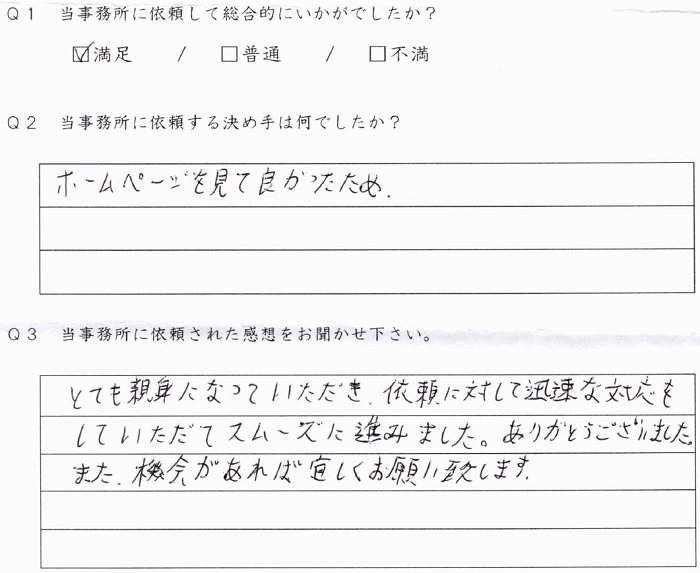 Q1 当事務所に依頼して総合的にいかがでしたか？
☑満足 / □普通 / □不満
Q2 当事務所に依頼する決め手は何でしたか？
ホームページを見て良かったため.
Q3 当事務所に依頼された感想をお聞かせ下さい。
とても親身になっていただき、依頼に対して迅速な対応を
していただてスムーズに進みました。ありがとうございました。
また、機会があれば宜しくお願い致します.